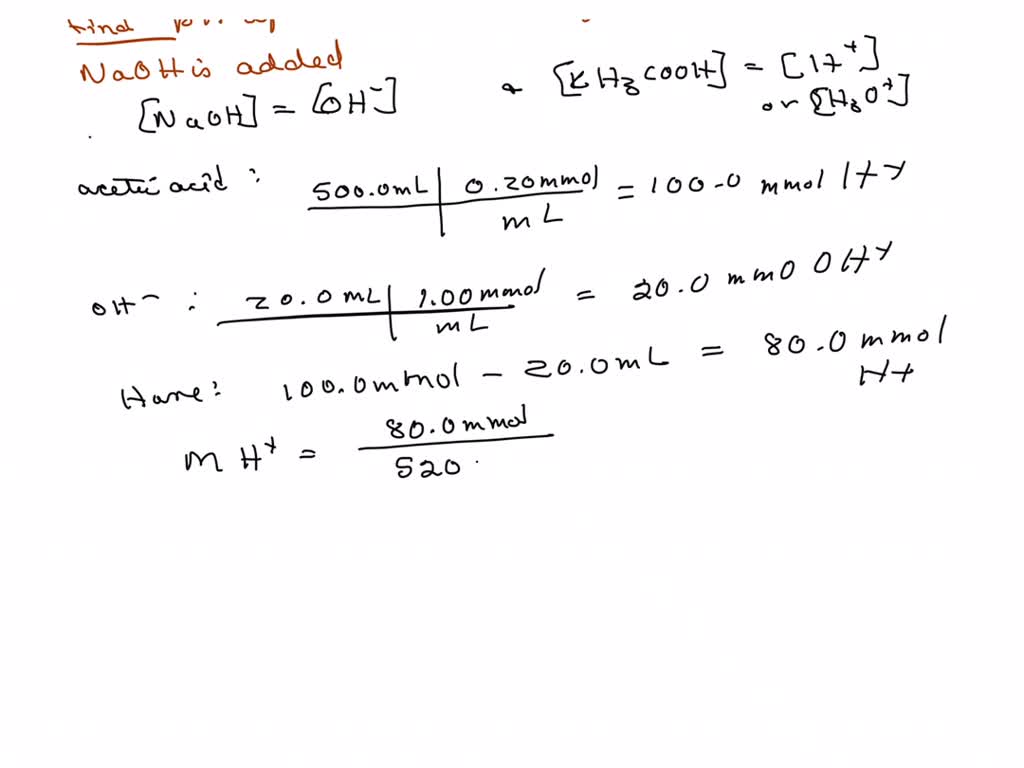 Find
NaOH is added
[NaOH] = [OH⁻] & [CH₃COOH] = [H⁺]
or [H₃O⁺]
acetic acid : 500.0mL | 0.20mmol / mL = 100.0 mmol H⁺
OH⁻ : 20.0mL | 1.00mmol / mL = 20.0 mmO OH⁺
Have: 100.0mmol - 20.0mL = 80.0mmol H+
M H⁺ = 80.0mmol / 520.